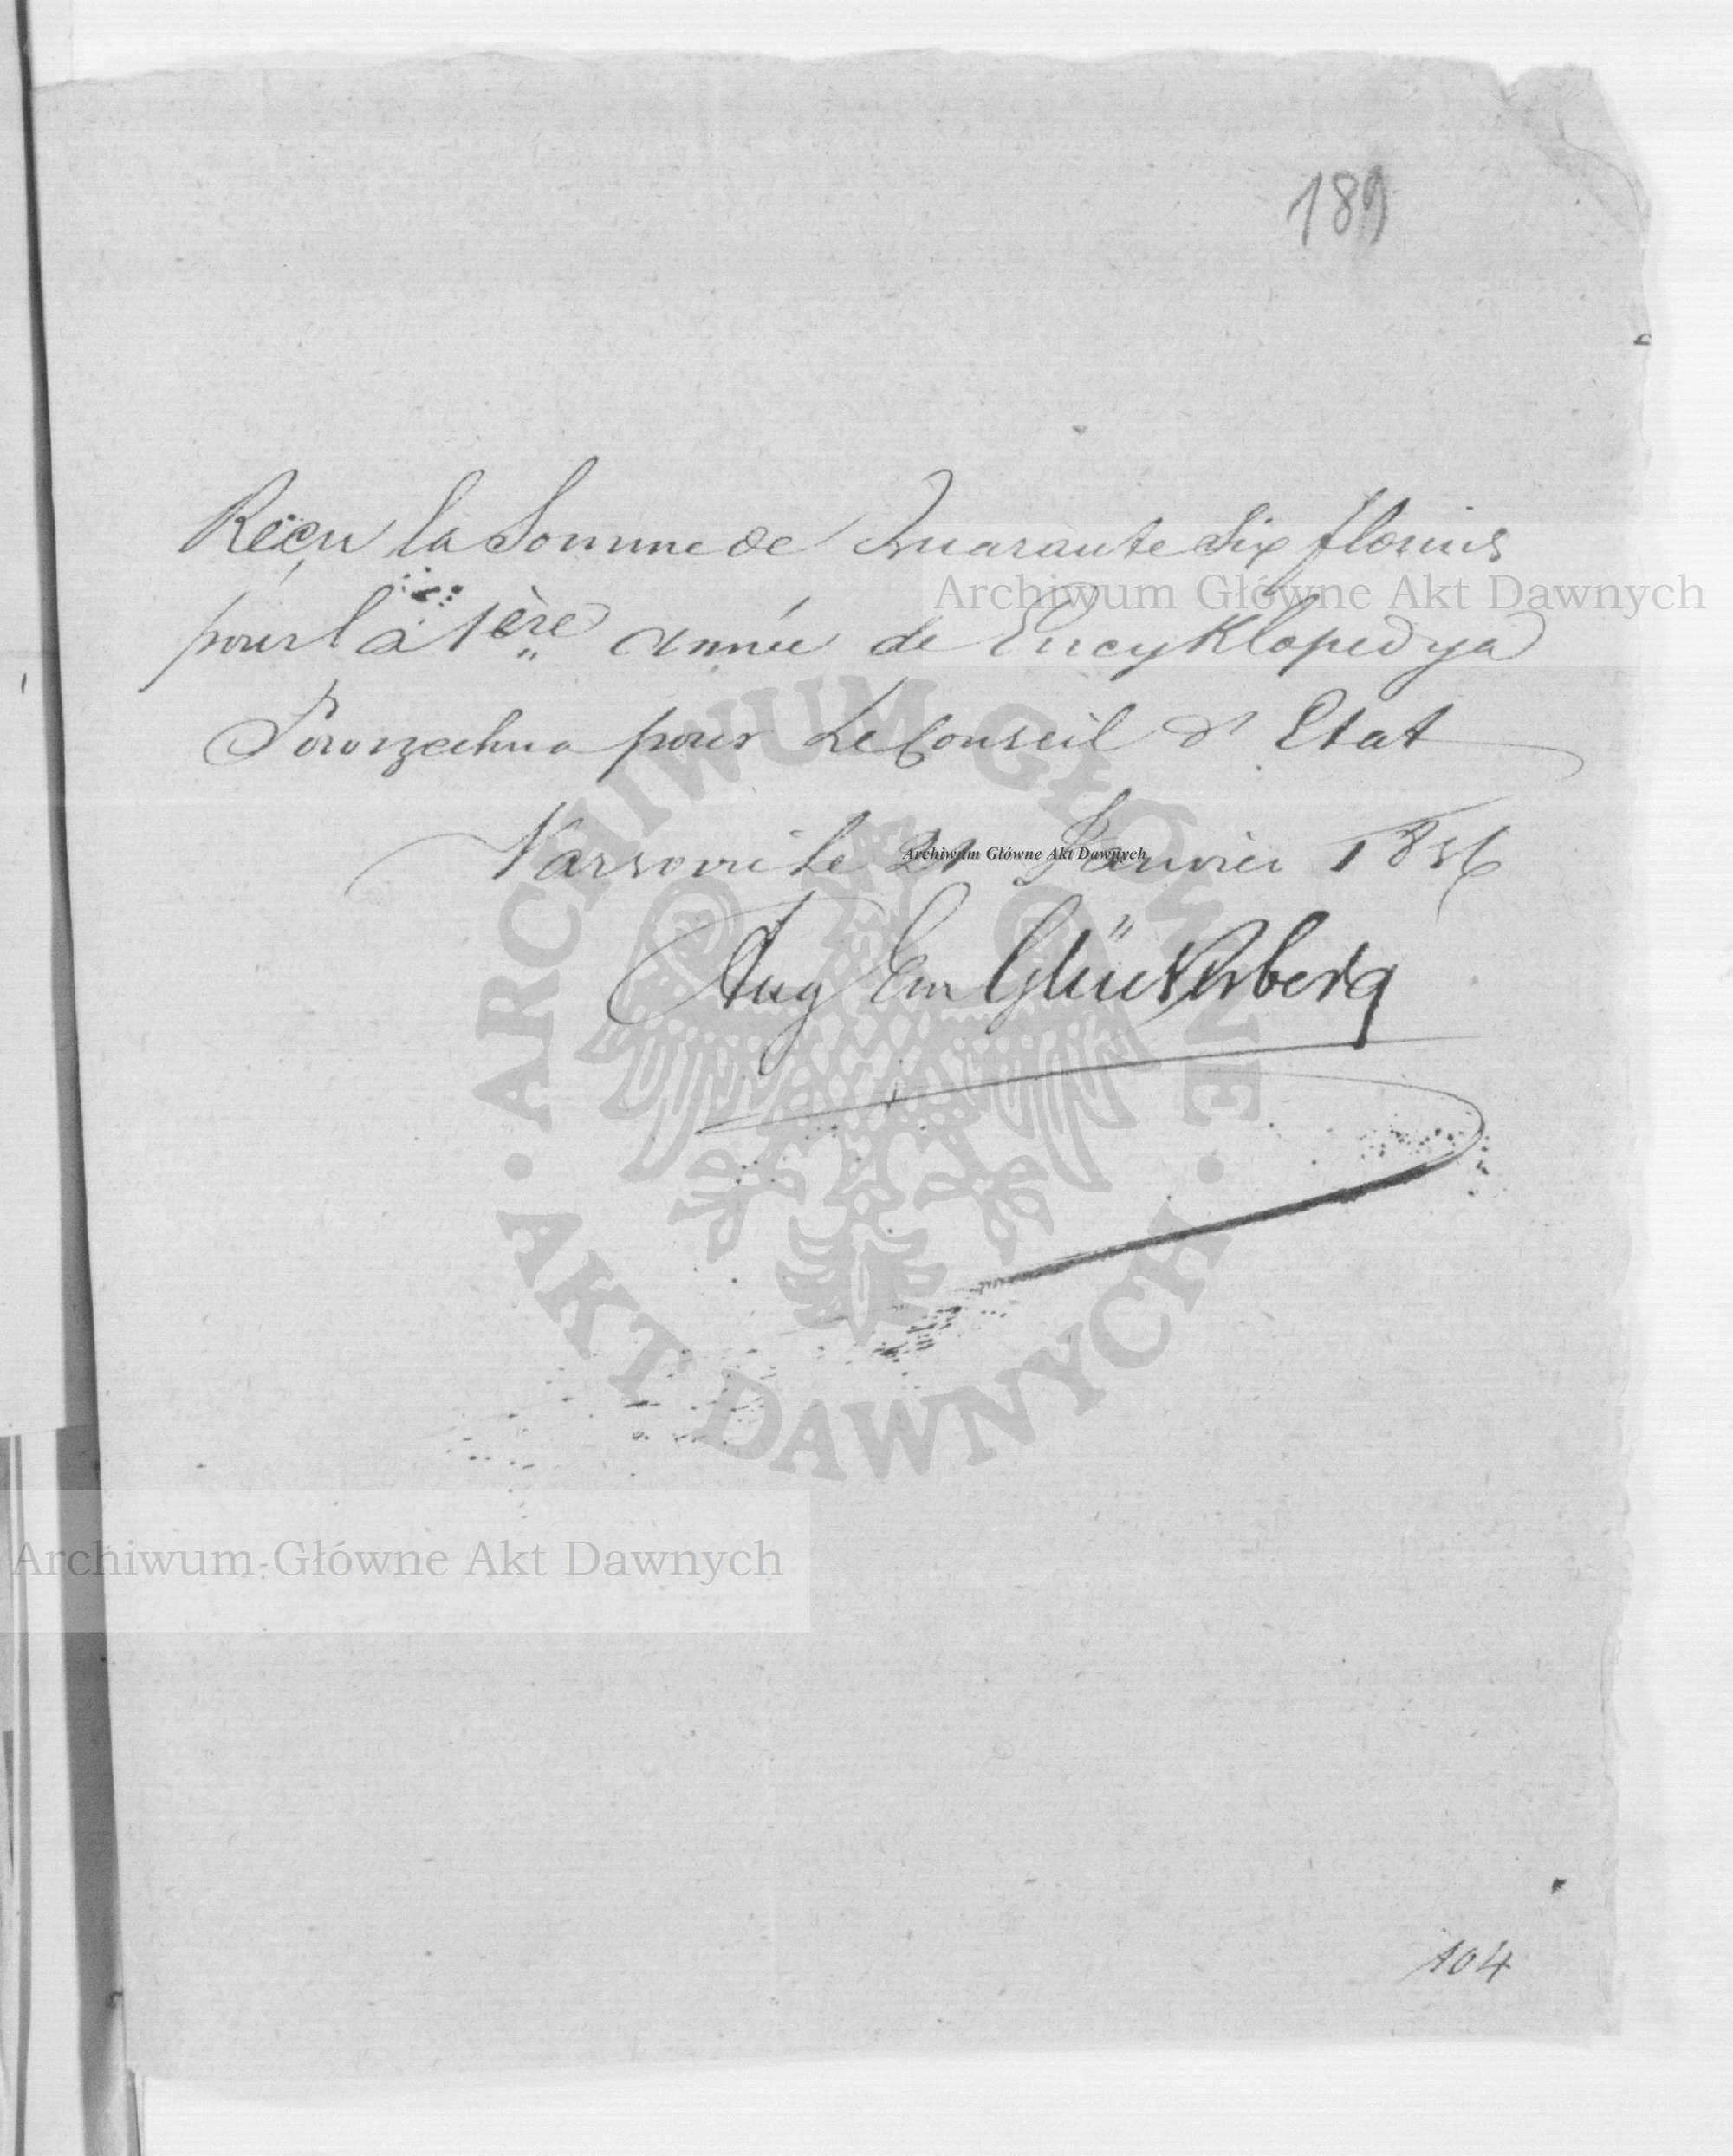 189
Reçu la Somme de Quarante Six florins
Archiwum Główne Akt Dawnych
pour la 1ère année de Encyklopedya
Powszechna pour Le Conseil d'Etat
Varsovie le 21 Janvier 1836
Archiwum Główne Akt Dawnych
Aug Em Glücksberg
ARCHIWUM GŁÓWNE
AKT DAWNYCH
Archiwum Główne Akt Dawnych
104